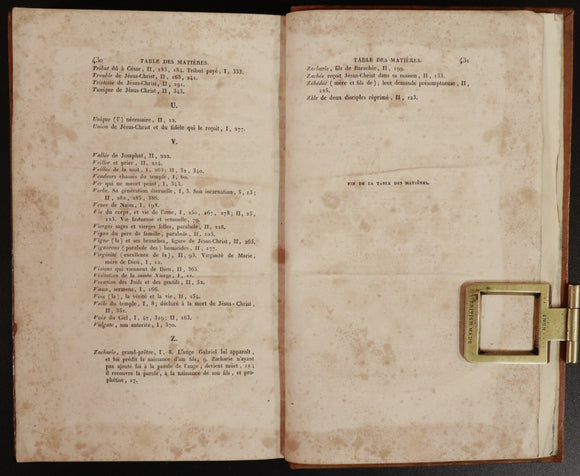 430 TABLE DES MATIÈRES.
Tribut dû à César, II, 183, 184. Tribut payé, I, 333.
Trouble de Jésus-Christ, II, 168, 241.
Tristesse de Jésus-Christ, II, 291.
Tunique de Jésus-Christ, II, 343.
U.
Unique (l') nécessaire, II, 12.
Union de Jésus-Christ et du fidèle qui le reçoit, I, 277.
V.
Vallée de Josaphat, II, 222.
Veiller et prier, II, 224.
Veilles de la nuit, I, 263; II, 32, 340.
Vendeurs chassés du temple, I, 60.
Ver qui ne meurt point, I, 343.
Verbe. Sa génération éternelle, I, 3. Son incarnation, 5, 13;
II, 282, 285, 386.
Veuve de Naïm, I, 198.
Vie du corps, et vie de l'âme, I, 250, 267, 278; II, 25,
125. Vie fastueuse et sensuelle, 79.
Vierges sages et vierges folles, parabole, II, 228.
Vigne du père de famille, parabole, II, 125.
Vigne (la) et ses branches, figure de Jésus-Christ, II, 265.
Vignerons (parabole des) homicides, II, 177.
Virginité (excellence de la), II, 93. Virginité de Marie,
mère de Dieu, I, 12.
Visions qui viennent de Dieu, II, 365.
Visitation de la sainte Vierge, I, 11.
Vocation des Juifs et des gentils, II, 52.
Vœux, sermens, I, 166.
Voie (la), la vérité et la vie, II, 254.
Voile du temple, I, 8; déchiré à la mort de Jésus-Christ,
II, 351.
Voix du Ciel, I, 47, 329; II, 163.
Vulgate, son autorité, I, 370.
Z.
Zacharie, grand-prêtre, I, 8. L'ange Gabriel lui apparaît,
et lui prédit la naissance d'un fils, 9. Zacharie n'ayant
pas ajouté foi à la parole de l'ange, devient muet, 11;
il recouvre la parole, à la naissance de son fils, et prophétise, 17.
TABLE DES MATIÈRES. 431
Zacharie, fils de Barachie, II, 199.
Zachée reçoit Jésus-Christ dans sa maison, II, 133.
Zébédée (mère et fils de); leur demande présomptueuse, II,
125.
Zèle de deux disciples réprimé, II, 123.
FIN DE LA TABLE DES MATIÈRES.
BRITISH MADE